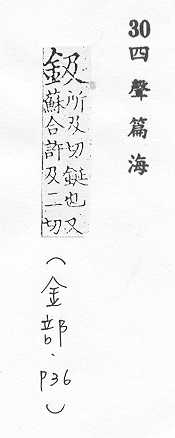 30四聲篇海
鈒所及切鋋也又
蘇合許及二切
（金部．P36）